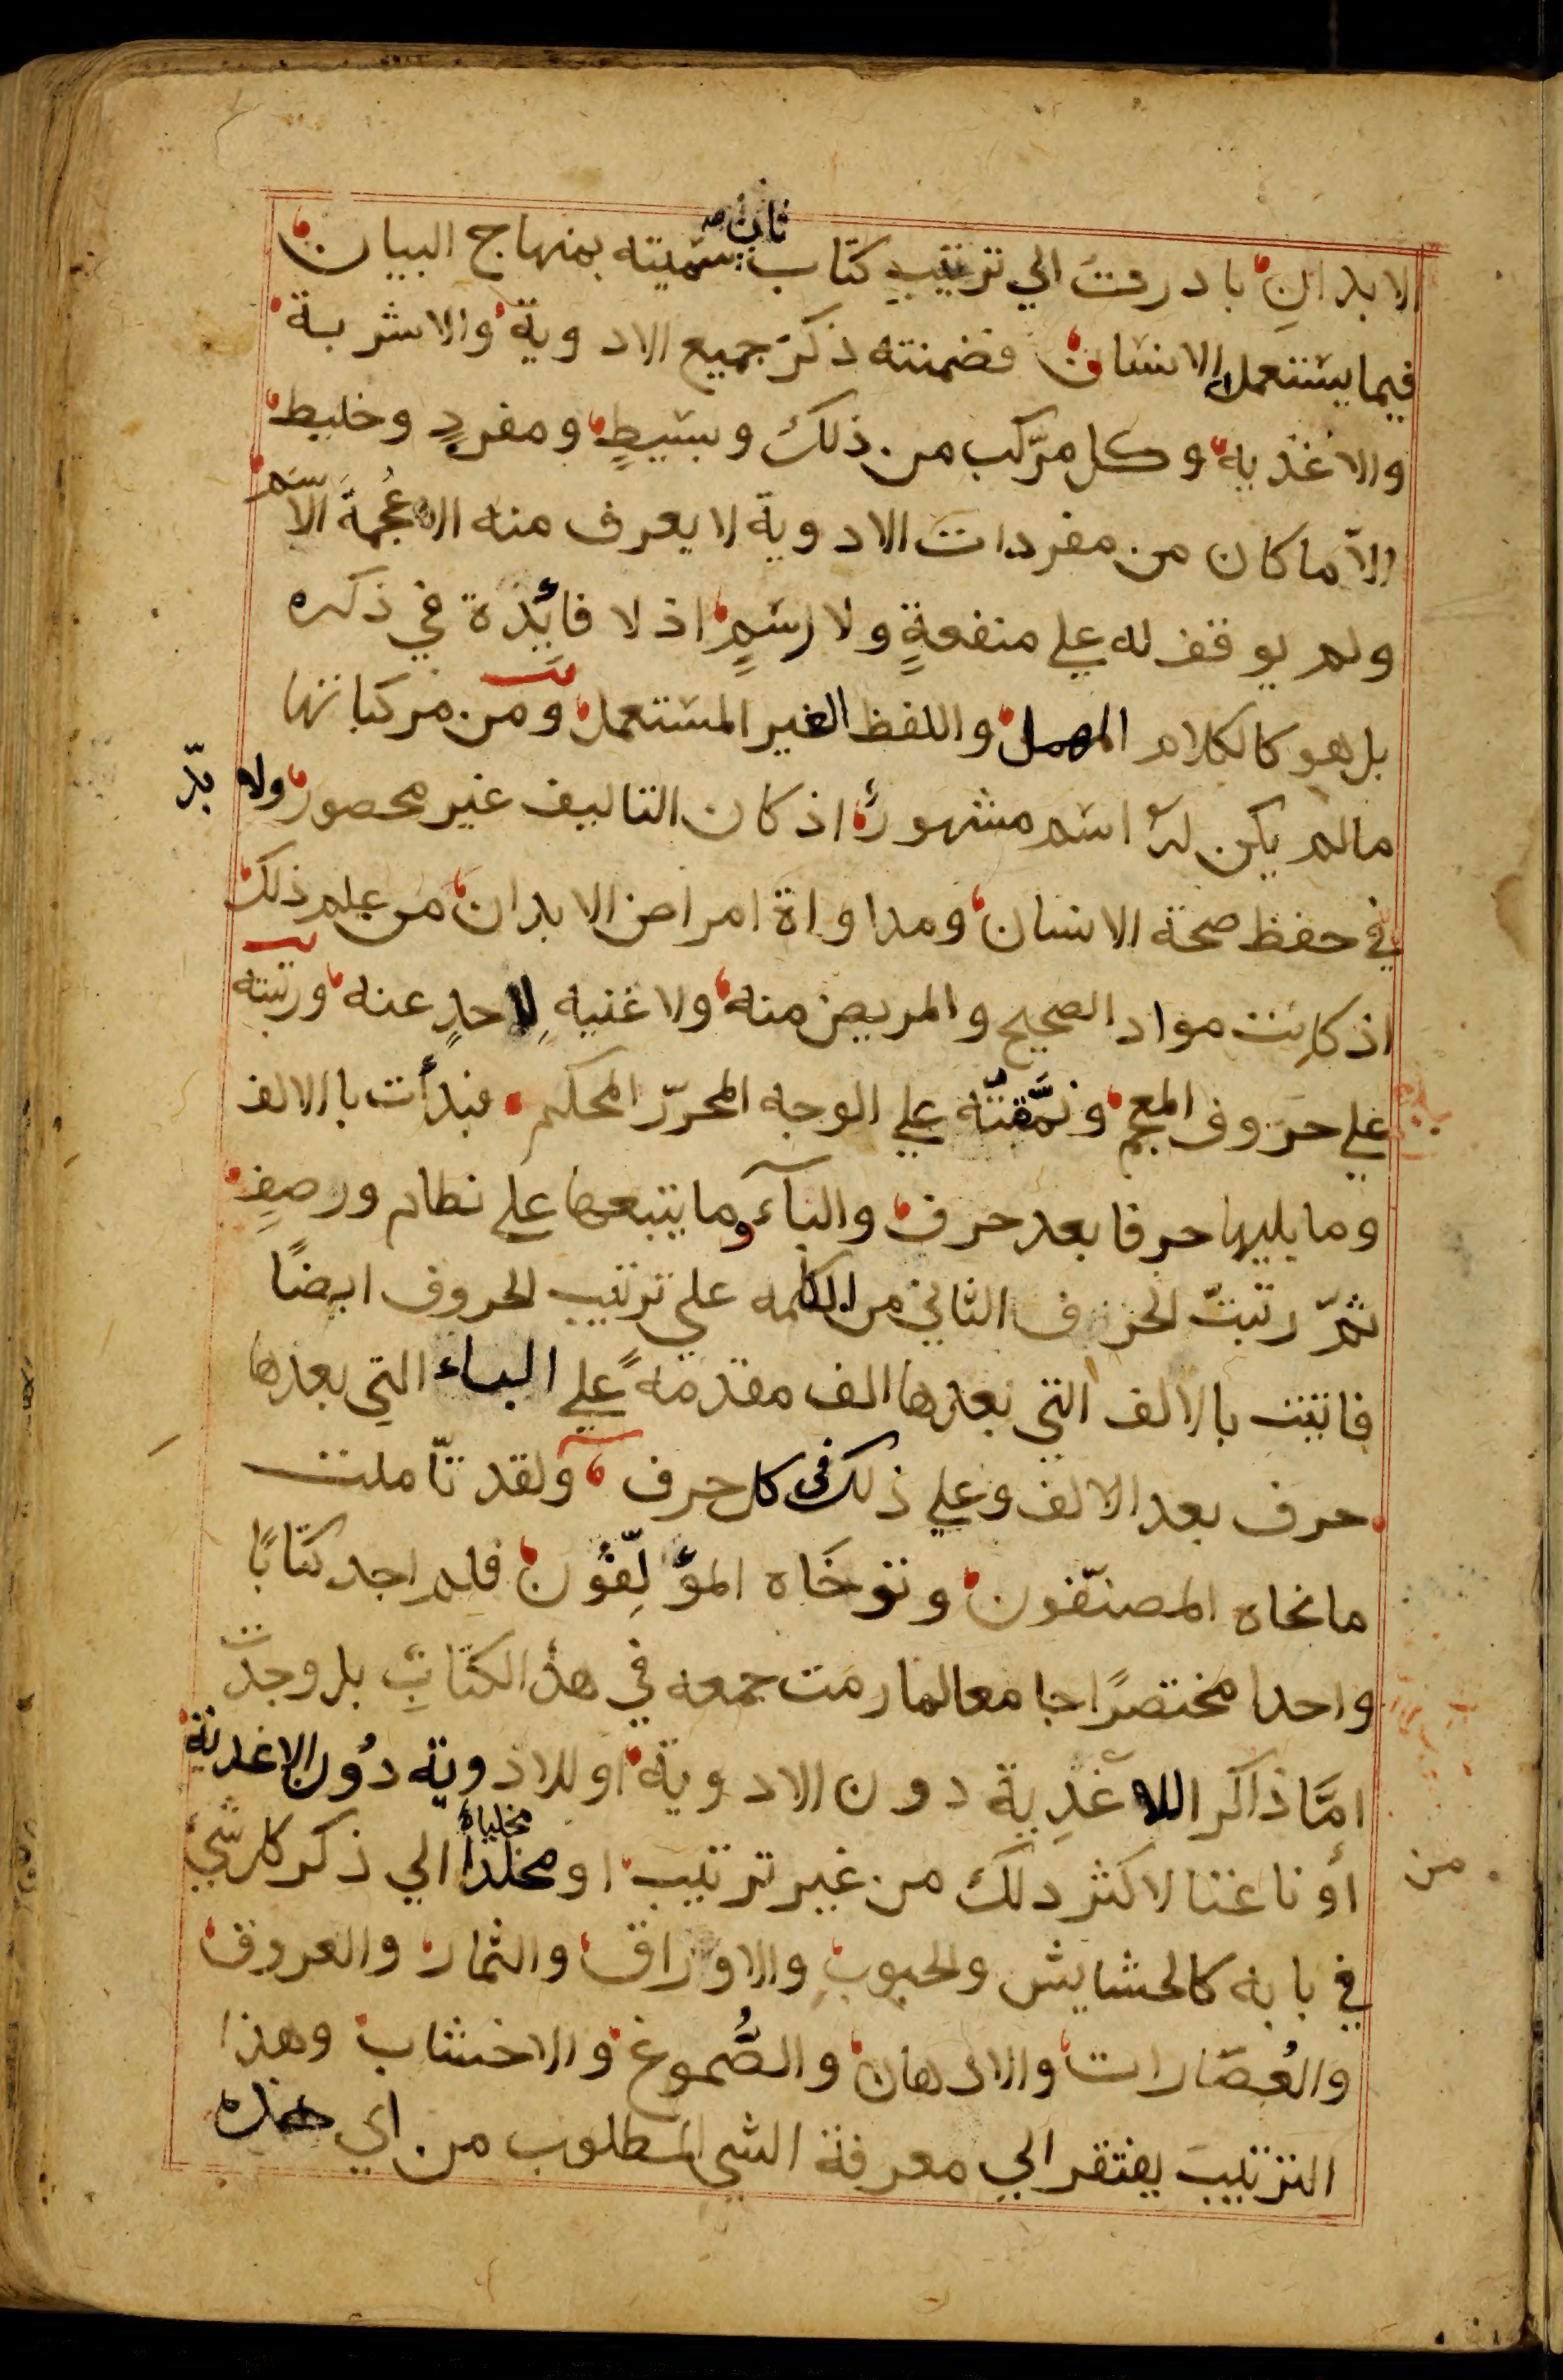 الابدانِ بادرتُ الي ترتيب كتاب ثانٍ سمّيته بمنهاج البيان
فيما يستعمله الانسان فضمنته ذكرَ جميع الادوية والاشربة
والاغذيه وكل مرّكب من ذلك وبسيطٍ ومفردٍ وخليط
الاّ ما كان من مفردات الادوية لا يعرف منه الا عُجمة الاسم
ولم يوقف له علي منفعةٍ ولا رسمٍ اذ لا فائدة في ذكره
بل هو كالكلام المهمل واللفظ الغير المستعمل ومن مركباتها
مالم يكن له اسم مشهور اذ كان التاليف غير محصور ولا بدّ
في حفظ صحة الانسان ومداواة امراض الابدان من علم ذلك
اذ كانت مواد الصحيح والمريض منه ولا غنيه لاحدٍ عنه ورتبته
علي حروف المعجم ونمَّقتّه علي الوجه المحرّر المحكم فبدأت باالالف
وما يليها حرفا بعد حرف والبآء وما يتبعها علي نظام ورصفٍ
ثمّ رتبتّ الحرف الثاني من الكلمه علي ترتيب الحروف ايضًا
فاتيت بالالف التي بعدها الف مقدمةً علي الباء التي بعدها
حرف بعد الالف وعلي ذلك في كل حرف ولقد تاّملت
مانحاه المصنّفون وتوخَاه المؤلّفِوُن فلم اجد كتابًا
واحدا مختصرًا جامعا لما رمت جمعه في هذ الكتابِ بل وجدتُ
امَّا ذاكر اللاغذِية دون الادوية او للادوية دُون الاغدية
أو ناعتا لاكثر دلك من غير ترتيب او مخلدا مخلياهٔ الي ذكر كل شئ من
في بابه كالحشايش والحبوب والاوراق والثمار والعروق
والعُصَارات والادهان والصُّموغ والاخشاب وهذا
الترتيب يفتقر الي معرفة الشي المطلوب من اي هذه